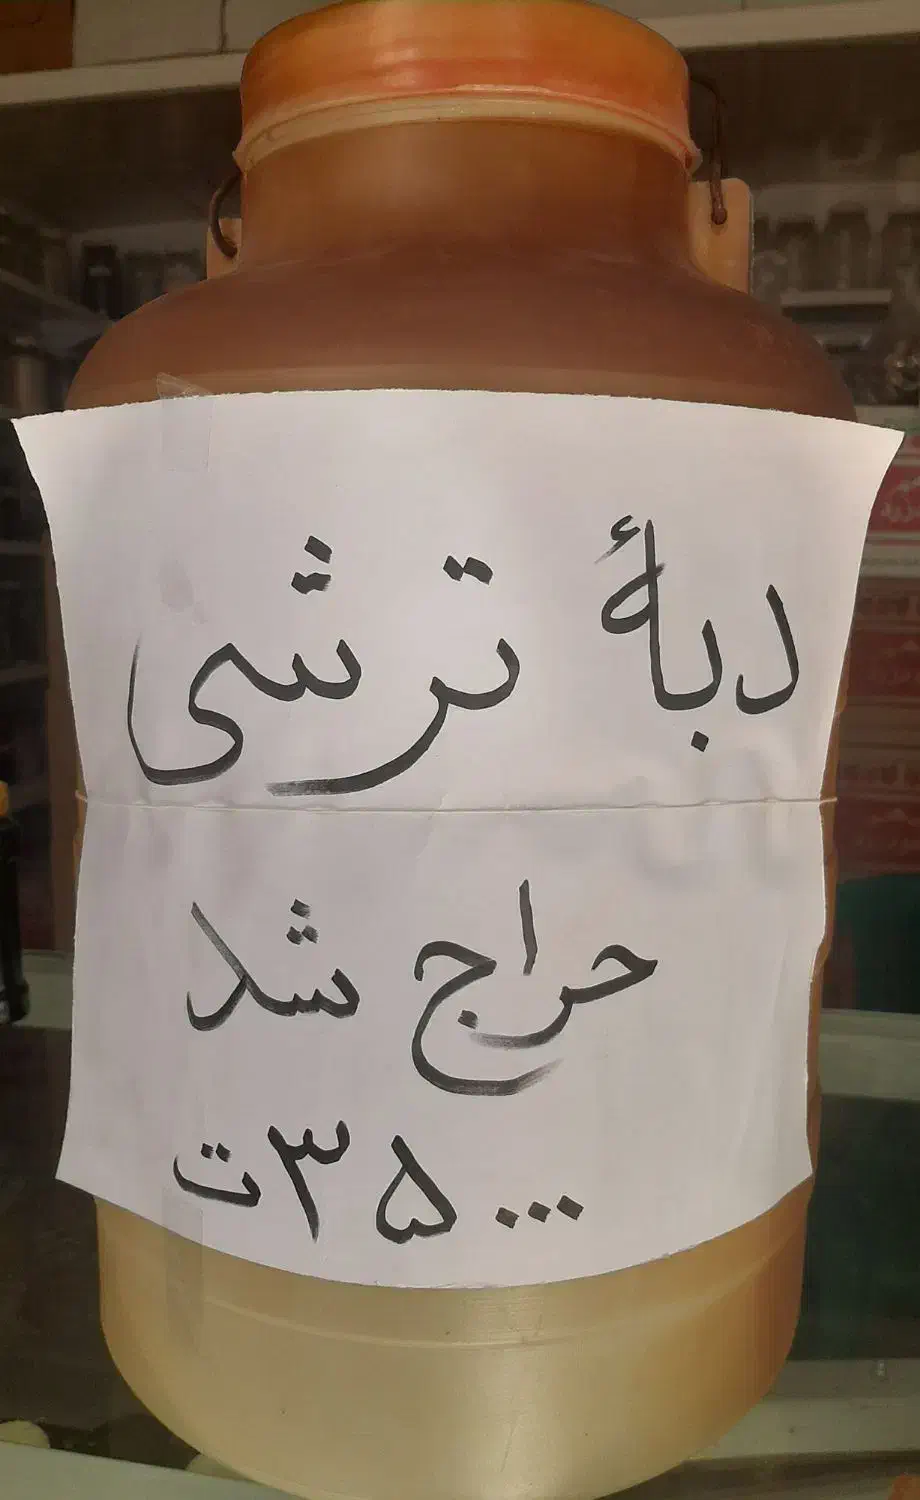 دبهٔ ترشی
حراج شد
۳۵۰۰۰ ت